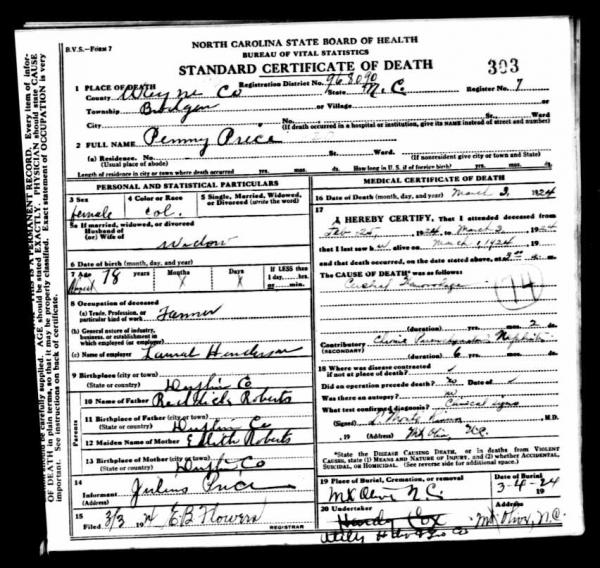 B.V.S.—Form 7
NORTH CAROLINA STATE BOARD OF HEALTH
BUREAU OF VITAL STATISTICS
STANDARD CERTIFICATE OF DEATH
303
1 PLACE OF DEATH
Registration District No. 968090
Register No. 7
County Wayne Co State N.C.
Township Brogden or Village or
City No. St. Ward
(If death occurred in a hospital or institution, give its NAME instead of street and number)
2 FULL NAME Penny Price
(a) Residence. No. St. Ward.
(Usual place of abode) (If nonresident give city or town and State)
Length of residence in city or town where death occurred yrs. mos. ds. How long in U. S. if of foreign birth? yrs. mos. ds.
PERSONAL AND STATISTICAL PARTICULARS
3 Sex female
4 Color or Race col.
5 Single, Married, Widowed, or Divorced (write the word)
5a If married, widowed, or divorced
Husband of
(or) Wife of Widow
6 Date of birth (month, day, and year)
7 Age About 78 years
Months X
Days X
If LESS than
1 day, hrs.
or min.
8 Occupation of deceased
(a) Trade, Profession, or
particular kind of work Farmer
(b) General nature of industry,
business, or establishment in
which employed (or employer)
(c) Name of employer Henderson
9 Birthplace (city or town)
(State or country) Duplin Co
Parents
10 Name of Father Roberts
11 Birthplace of Father (city or town)
(State or country) Duplin Co
12 Maiden Name of Mother Edith Roberts
13 Birthplace of Mother (city or town)
(State or country) Duplin Co
14
Informant Julius Price
(Address)
15
Filed 3/3 1924 E B Flowers
REGISTRAR
MEDICAL CERTIFICATE OF DEATH
16 Date of Death (month, day, and year) March 3, 1924
17
I HEREBY CERTIFY, That I attended deceased from
Feb 25, 1924, to March 3 1924
that I last saw h alive on March 1, 1924 19
and that death occurred, on the date stated above, at
The CAUSE OF DEATH* was as follows
Cerebral Hemorrhage
74
(duration) yrs. mos. 7 ds.
Contributory Nephritis
(SECONDARY)
(duration) 6 yrs. mos. ds.
18 Where was disease contracted
if not at place of death?
Did an operation precede death? no Date of
Was there an autopsy? no
What test confirmed diagnosis? Clinical signs
(Signed) M.D.
, 19 (Address) Mt Olive, N.C.
*State the DISEASE CAUSING DEATH, or in deaths from VIOLENT
CAUSES, state (1) MEANS AND NATURE OF INJURY, and (2) whether ACCIDENTAL,
SUICIDAL, or HOMICIDAL. (See reverse side for additional space.)
19 Place of Burial, Cremation, or removal
Mt Olive N.C.
Date of Burial
3-4-24
19
20 Undertaker
Address
Hardy Cox Mt Olive, N.C.
THIS IS A PERMANENT RECORD. Every item of infor-
mation should be carefully supplied. AGE should be stated EXACTLY. PHYSICIAN should state CAUSE
OF DEATH in plain terms, so that it may be properly classified. Exact statement of OCCUPATION is very
important. See instructions on back of certificate.